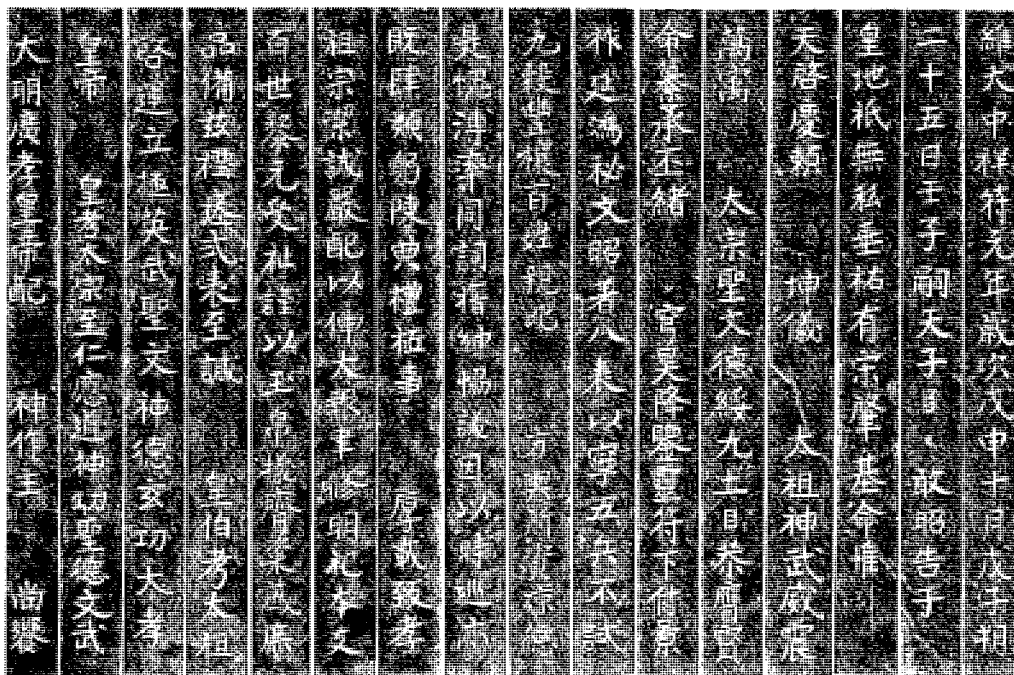 維大中祥符元年歲次戊申十月戊子朔
二十五日壬子嗣天子臣 敢昭告于
皇地祇無私垂祐有宋肇基命惟
天啓慶賴 坤儀 太祖神武威震
萬寓 太宗聖文德綏九土臣恭膺寶
命纂承丕緒 穹昊降祥靈符下付景
祚延鴻祕文昭著八表以寧五兵不試
九穀豐穰百姓親比 方輿所資涼德
是愧溥率同詞搢紳協議因以時巡亦
既肆類躬陳典禮祗事 厚載致孝
祖宗潔誠嚴配以伸大報聿修明祀本支
百世黎元受祉謹以玉帛犧齊粢盛庶
品備茲禋瘞式表至誠 皇伯考太祖
啓運立極英武聖文神德玄功大孝
皇帝 皇考太宗至仁應道神功聖德文武
大明廣孝皇帝配 神作主 尚饗